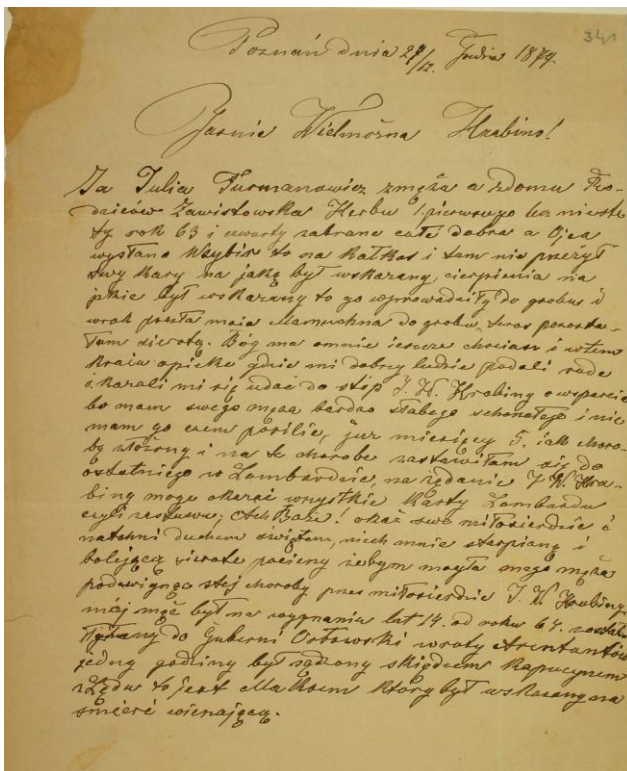 341
Poznań dnia 27/12. Grudnia 1879.
Jasnie Wielmożna Hrabino!
Ja Julia Furmanowicz zmęża a zdomu Ro-
dziców Zawistowska Herbu 1. pierwszego lecz nieste
ty rok 63 i czwarty zabrane całe dobra a Ojca
wysłano to na Kałkas i tam nie przeżył
swy Kary na jaką był wskazany, cierpienia na
jakie był wskazany to go wprowadziły do grobu i
wrok poszła moja Mamuchna do grobu, teras pozosta-
łam sierotą. Bóg ma omnie ieszcze chociasz i wtem
Kraiu opiekę gdzie mi dobrzy ludzie podali rade
i kazali mi się udać do stóp J. W. Hrabiny o wsparcie
bo mam swego męża bardzo słabego schonałego i nie
mam go czem posilic, już miesięcy 5. jak choro-
by złożony i na te chorobe zastawiłam się do
ostatniego w Lombardzie, na rządanie J. W. Hra-
biny moge okazać wszystkie Karty Lombardu
czyli zastawu; Ach Boże! okaż swo miłosierdzie i
natchni duchem świętem, niech mnie sterpianą i
bolejącą sierote pocieszy żebym mogła mego męża
podzwignąc stej choroby przes miłosierdzie J. W. Hrabiny
mój mąż był na wygnaniu lat 14. od roku 64. został
do Guberni Orłowski wroty Aresztantów
jedny godziny był sądzony skiędzem Kapucynem
z Lędu to jest Maksem Który był wskazany na
smierć wienającą.